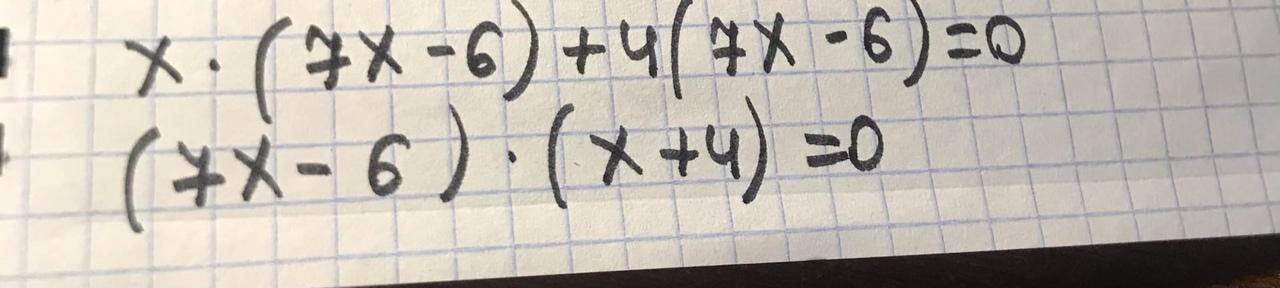 x · (7x - 6) + 4(7x - 6) = 0
(7x - 6) · (x + 4) = 0